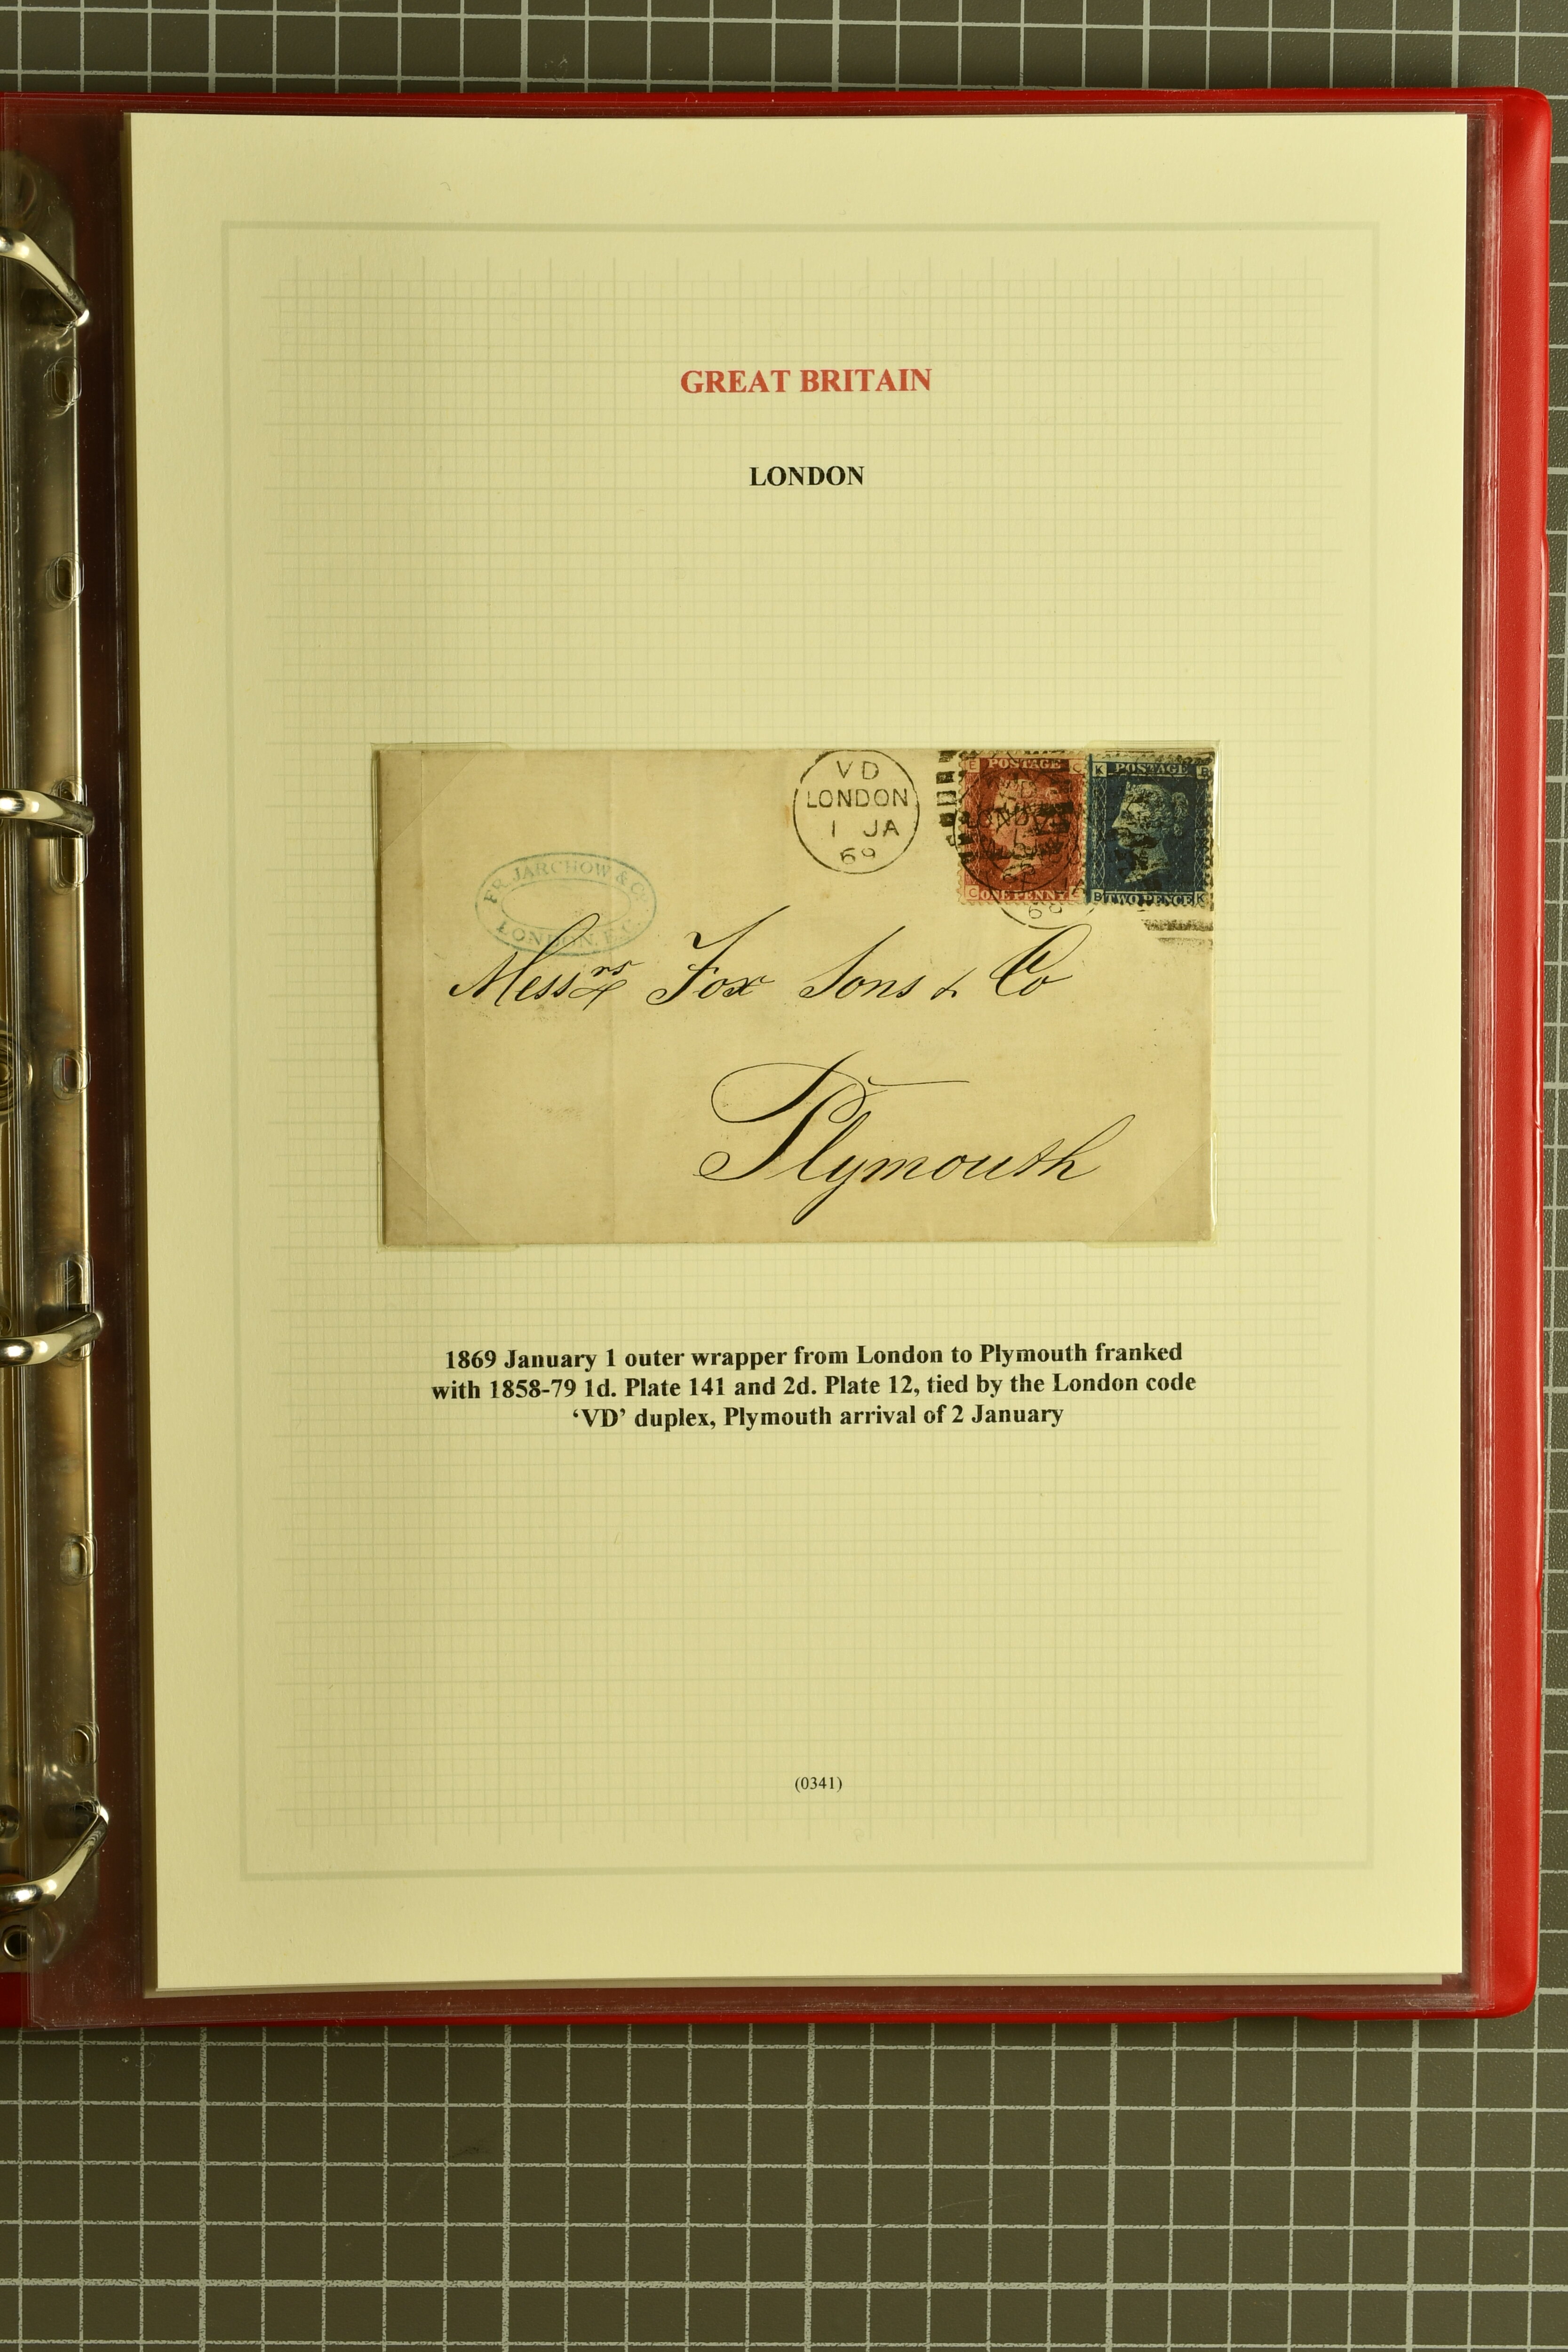 GREAT BRITAIN
LONDON
VD
LONDON
1 JA
69
E POSTAGE C
C ONE PENNY E
K POSTAGE B
B TWO PENCE K
LONDON
FR. JARCHOW & Co.
LONDON, E.C.
Messrs Fox Sons & Co
Plymouth
1869 January 1 outer wrapper from London to Plymouth franked
with 1858-79 1d. Plate 141 and 2d. Plate 12, tied by the London code
‘VD’ duplex, Plymouth arrival of 2 January
(0341)